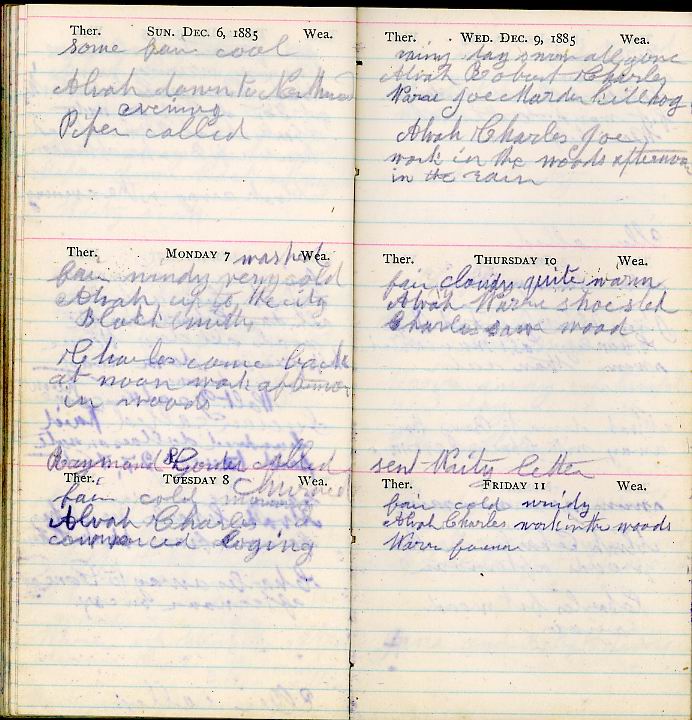 Ther. SUN. DEC. 6, 1885 Wea.
some fair cool
Alvah down to
evening
Piper called
Ther. MONDAY 7 washed Wea.
fair windy very cold
Alvah up to the city
Black smith
Charles came back
at noon work afternoon
in woods
Raymond & called
Ther. TUESDAY 8 Wea.
churned
fair cold
Alvah Charles
commenced loging
Ther. WED. DEC. 9, 1885 Wea.
rainy day snow all gone
Alvah Robert Charley
Warne Joe Marden kill hog
Alvah Charles Joe
work in the woods afternoon
in the rain
Ther. THURSDAY 10 Wea.
fair cloudy quite warm
Alvah Warne shoe sled
Charles saw wood
sent letter
Ther. FRIDAY 11 Wea.
fair cold windy
Alvah Charles work in the woods